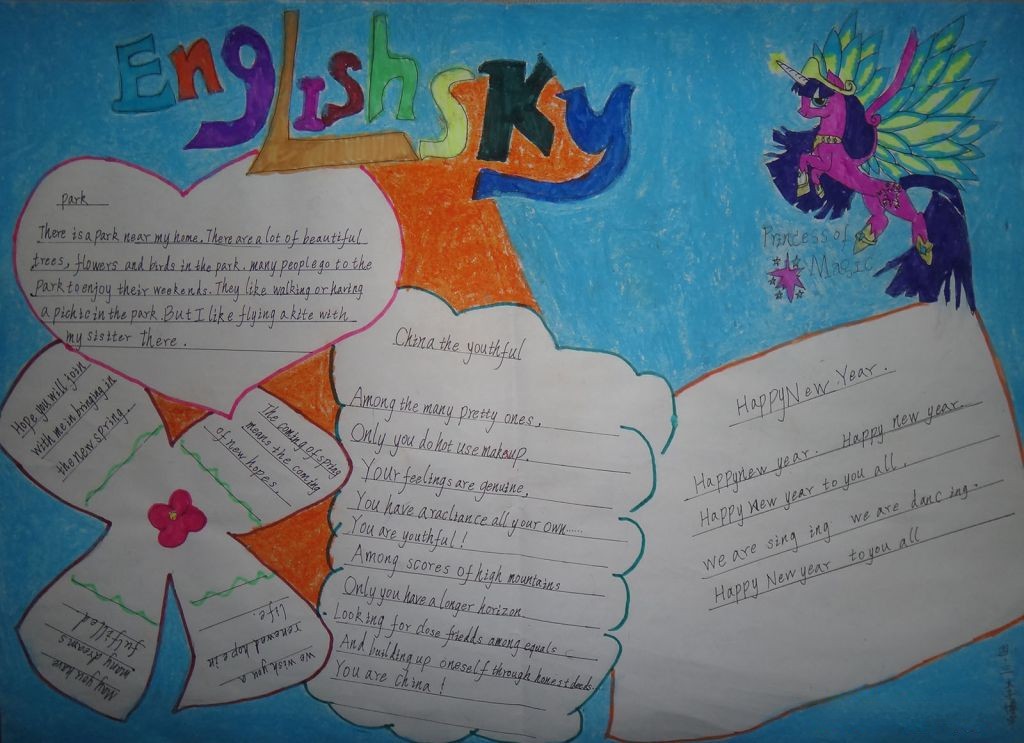 English sky
Princess of
Magic
park
There is a park near my home. There are a lot of beautiful
trees, flowers and birds in the park. many people go to the
park to enjoy their weekends. They like walking or having
a pichic in the park. But I like flying a kite with
my sisiter there.
Hope you will join
with me in bringing in
the new spring.
The coming of spring
means the coming
of new hopes.
May you have
many dreams
fulfilled.
we wish you a
renewed hope in
life.
China the youthful
Among the many pretty ones,
Only you do not use makeup.
Your feelings are genuine,
You have a racliance all your own......
You are youthful!
Among scores of high mountains
Only you have a longer horizon
Looking for close friedds among equals
And building up oneself through honest deeds.
You are China!
Happy New Year.
Happy new year. Happy new year.
Happy New year to you all.
we are sing ing we are danc ing.
Happy New year to you all